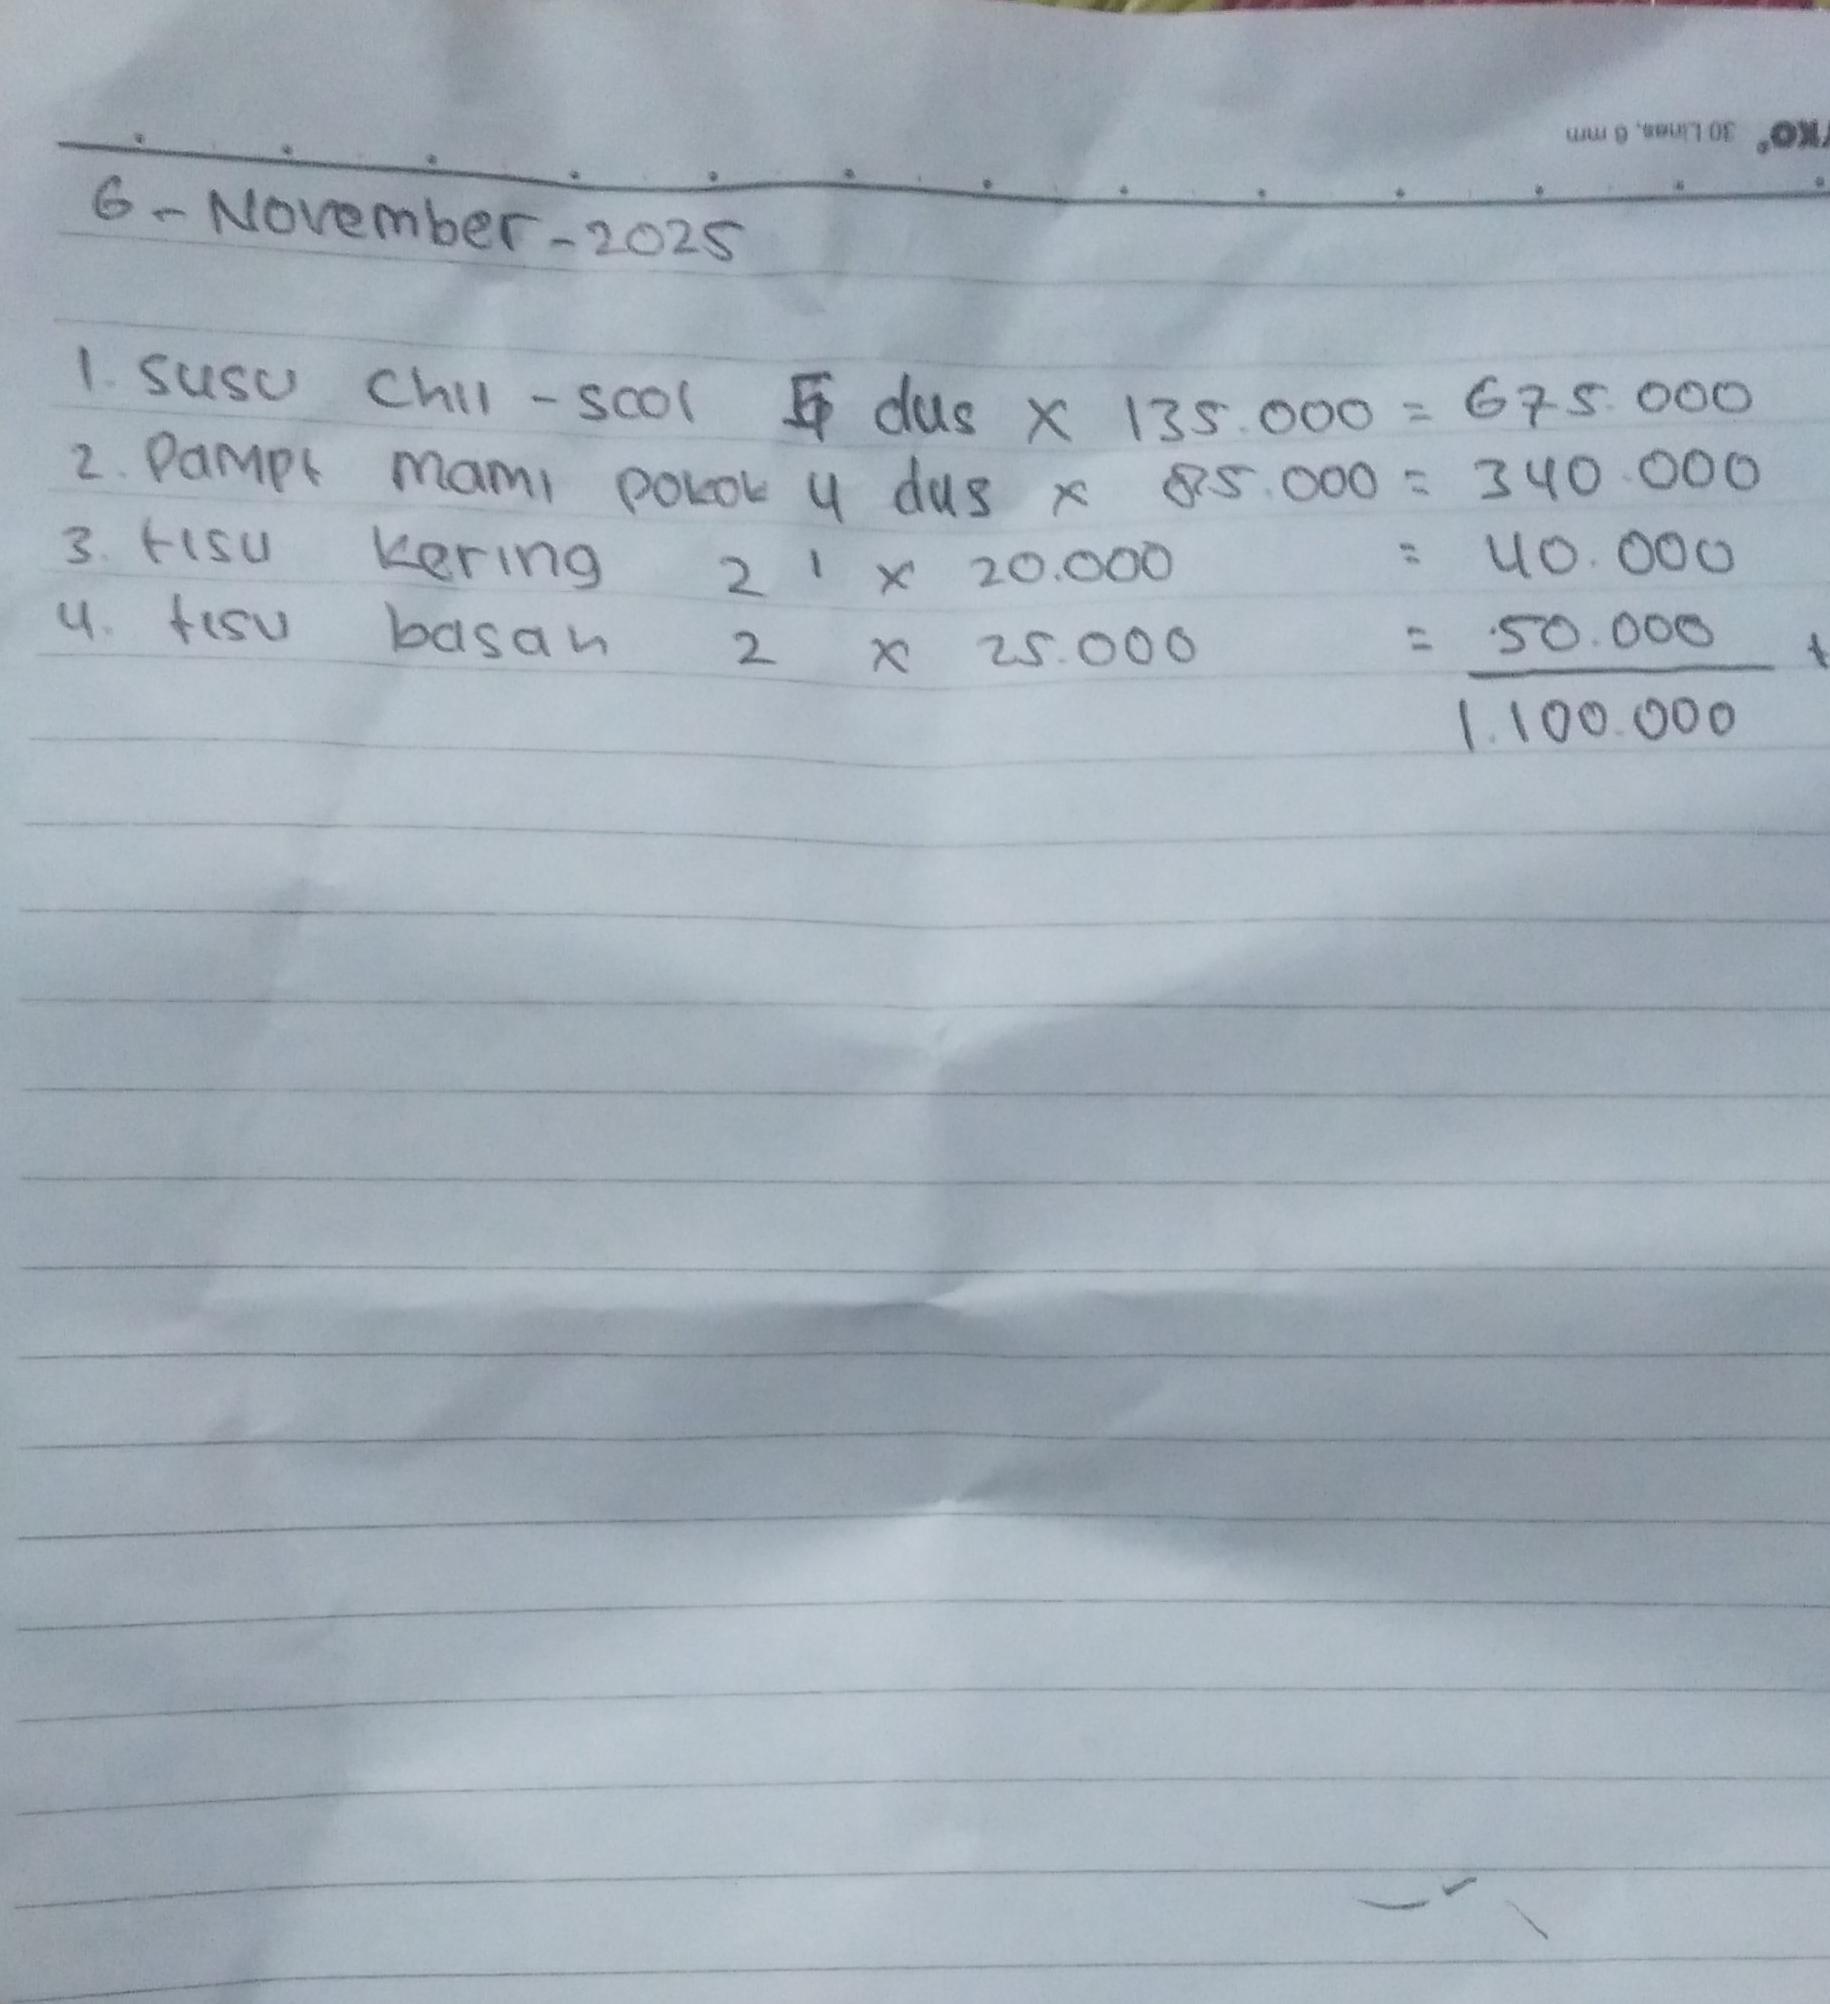 KO 30 Lines, 6 mm
6 - November - 2025
1. susu Chil - scol 5 dus x 135.000 = 675.000
2. Pampt mami pokok 4 dus x 85.000 = 340.000
3. tisu kering 2 x 20.000 = 40.000
4. tisu basah 2 x 25.000 = 50.000 +
1.100.000